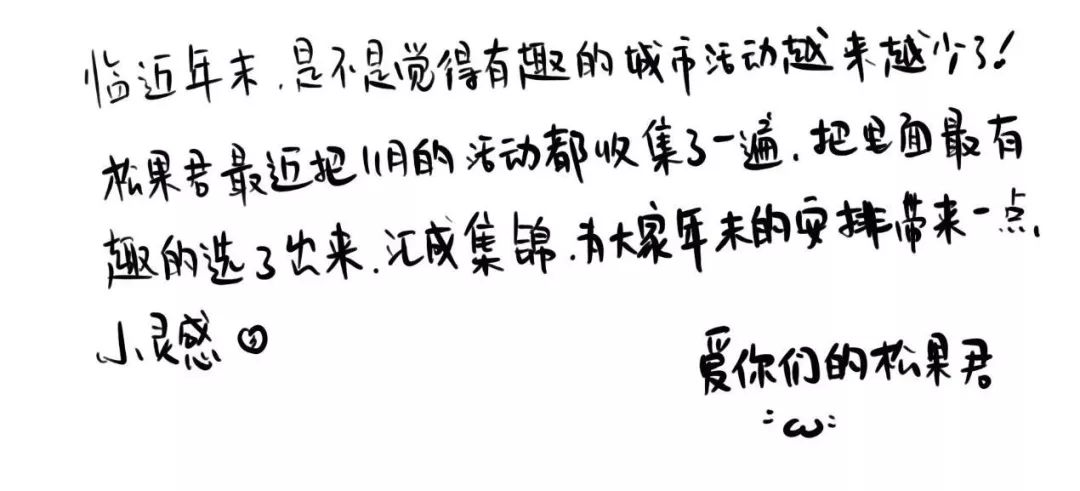 临近年末,是不是觉得有趣的城市活动越来越少了!
松果君最近把11月的活动都收集了一遍,把里面最有
趣的选了出来,汇成集锦,为大家年末的安排带来一点
小灵感
爱你们的松果君
:ω: